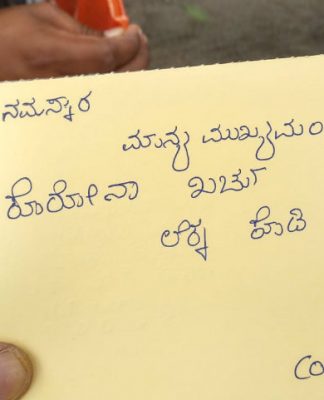 ನಮಸ್ಕಾರ
ಮಾನ್ಯ ಮುಖ್ಯಮಂ
ಕೊರೋನಾ ಖರ್ಚು
ಲೆಕ್ಕ ಕೊಡಿ
CO